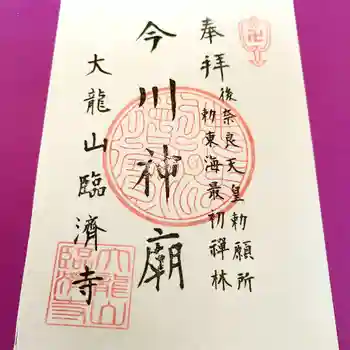 奉拝
後奈良天皇勅願所
勅東海最初禅林
今川神廟
大龍山臨済寺
大龍山
臨済寺